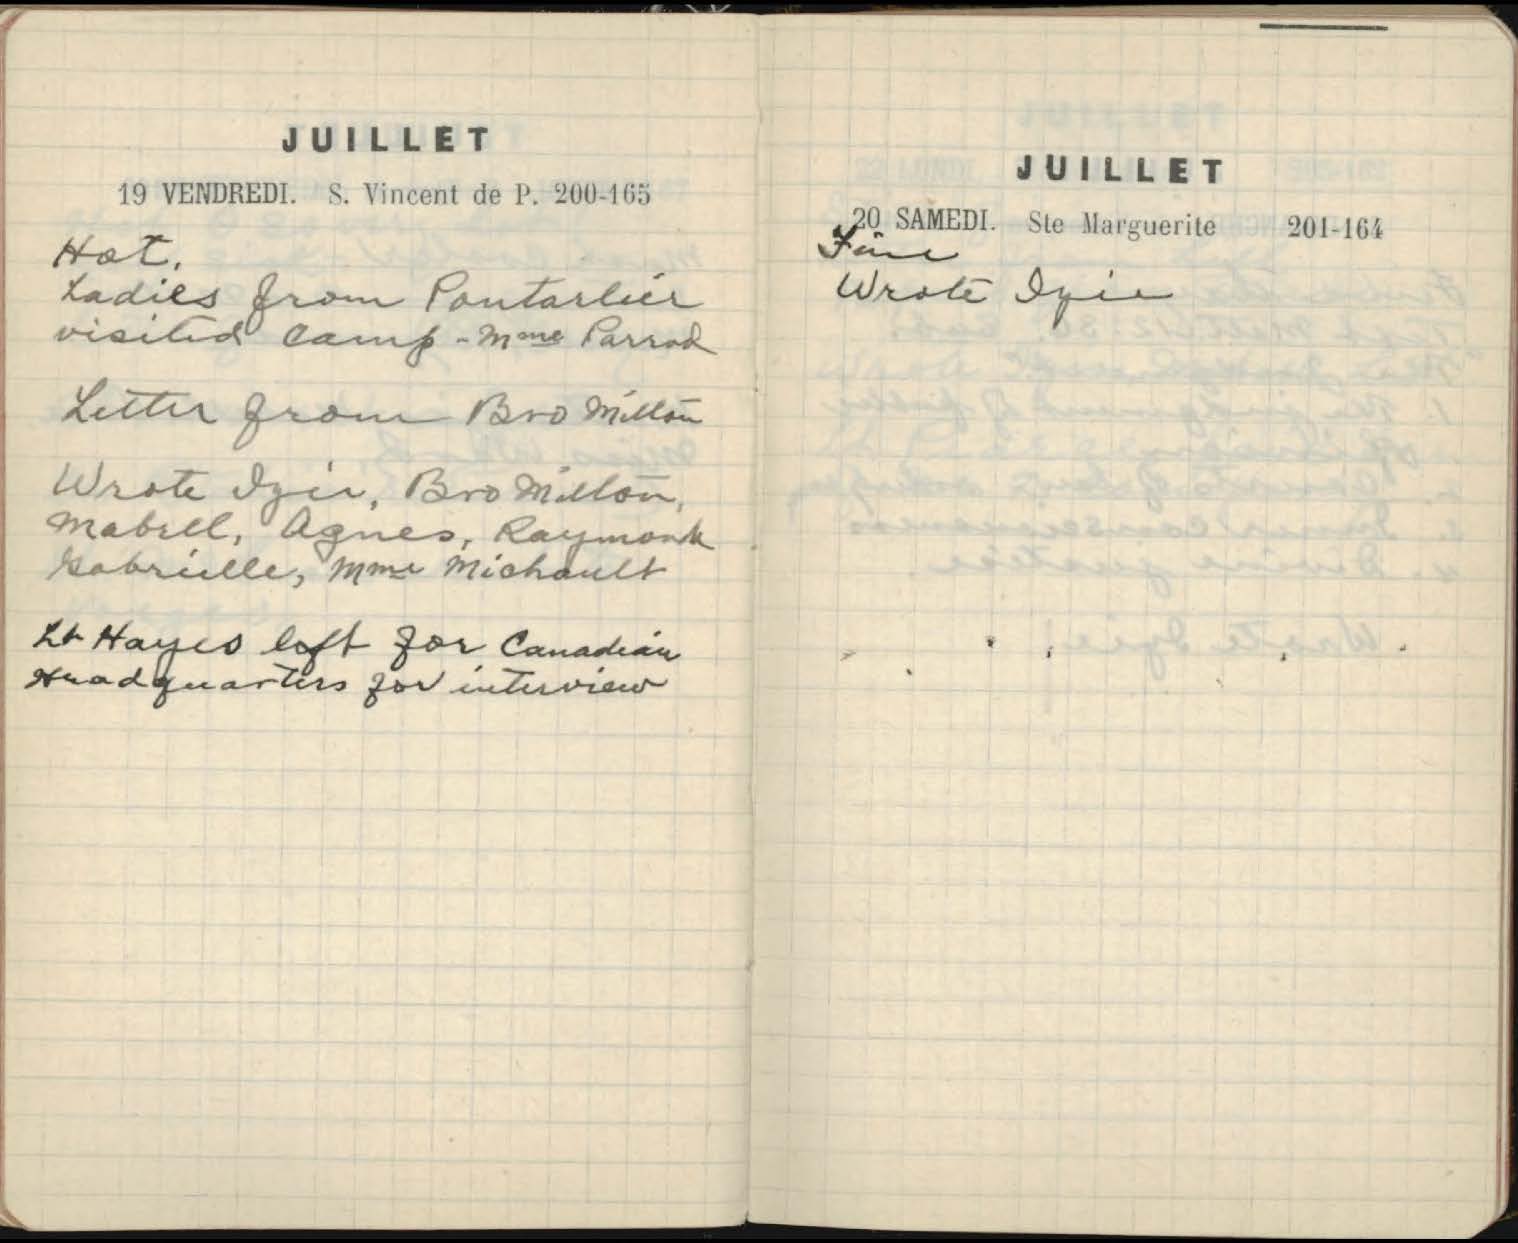 JUILLET
19 VENDREDI. S. Vincent de P. 200-165
Hot.
Ladies from Pontarlier
visited camp - Mme Parrod
Letter from Bro Milton
Wrote Izie, Bro Milton,
Mabell, Agnes, Raymond
Gabrielle, Mme Michault
Lt Hayes left for Canadian
Headquarters for interview
JUILLET
20 SAMEDI. Ste Marguerite 201-164
Fine
Wrote Izie